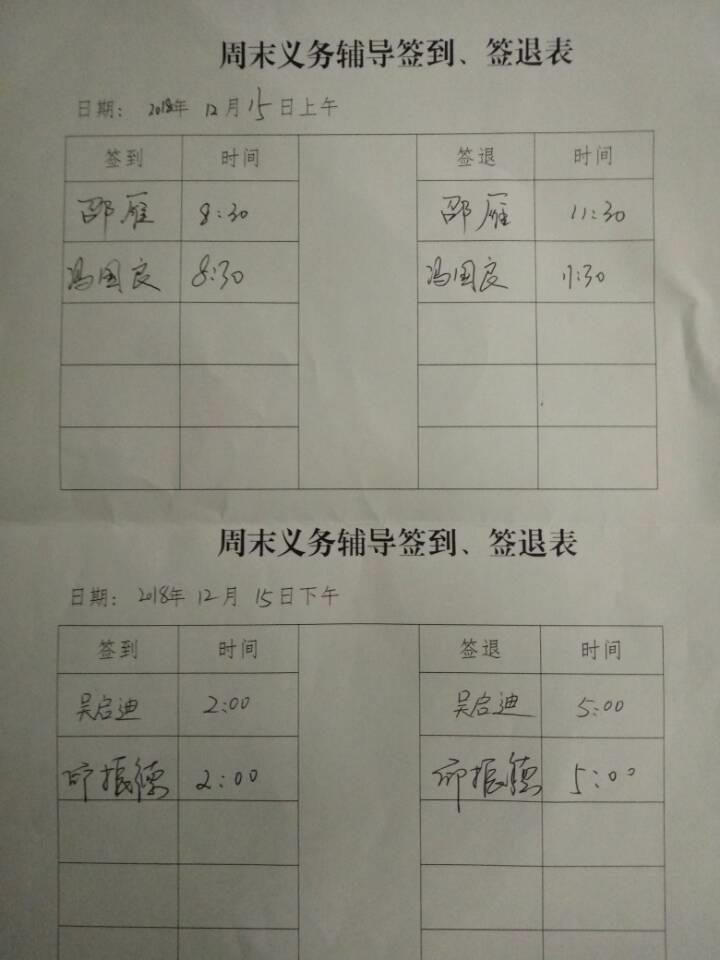 周末义务辅导签到、签退表
日期: 2018年 12月15日上午
签到 时间 签退 时间
邵雁 8:30 邵雁 11:30
冯国良 8:30 冯国良 11:30
周末义务辅导签到、签退表
日期: 2018年 12月 15日下午
签到 时间 签退 时间
吴启迪 2:00 吴启迪 5:00
邱振德 2:00 邱振德 5:00